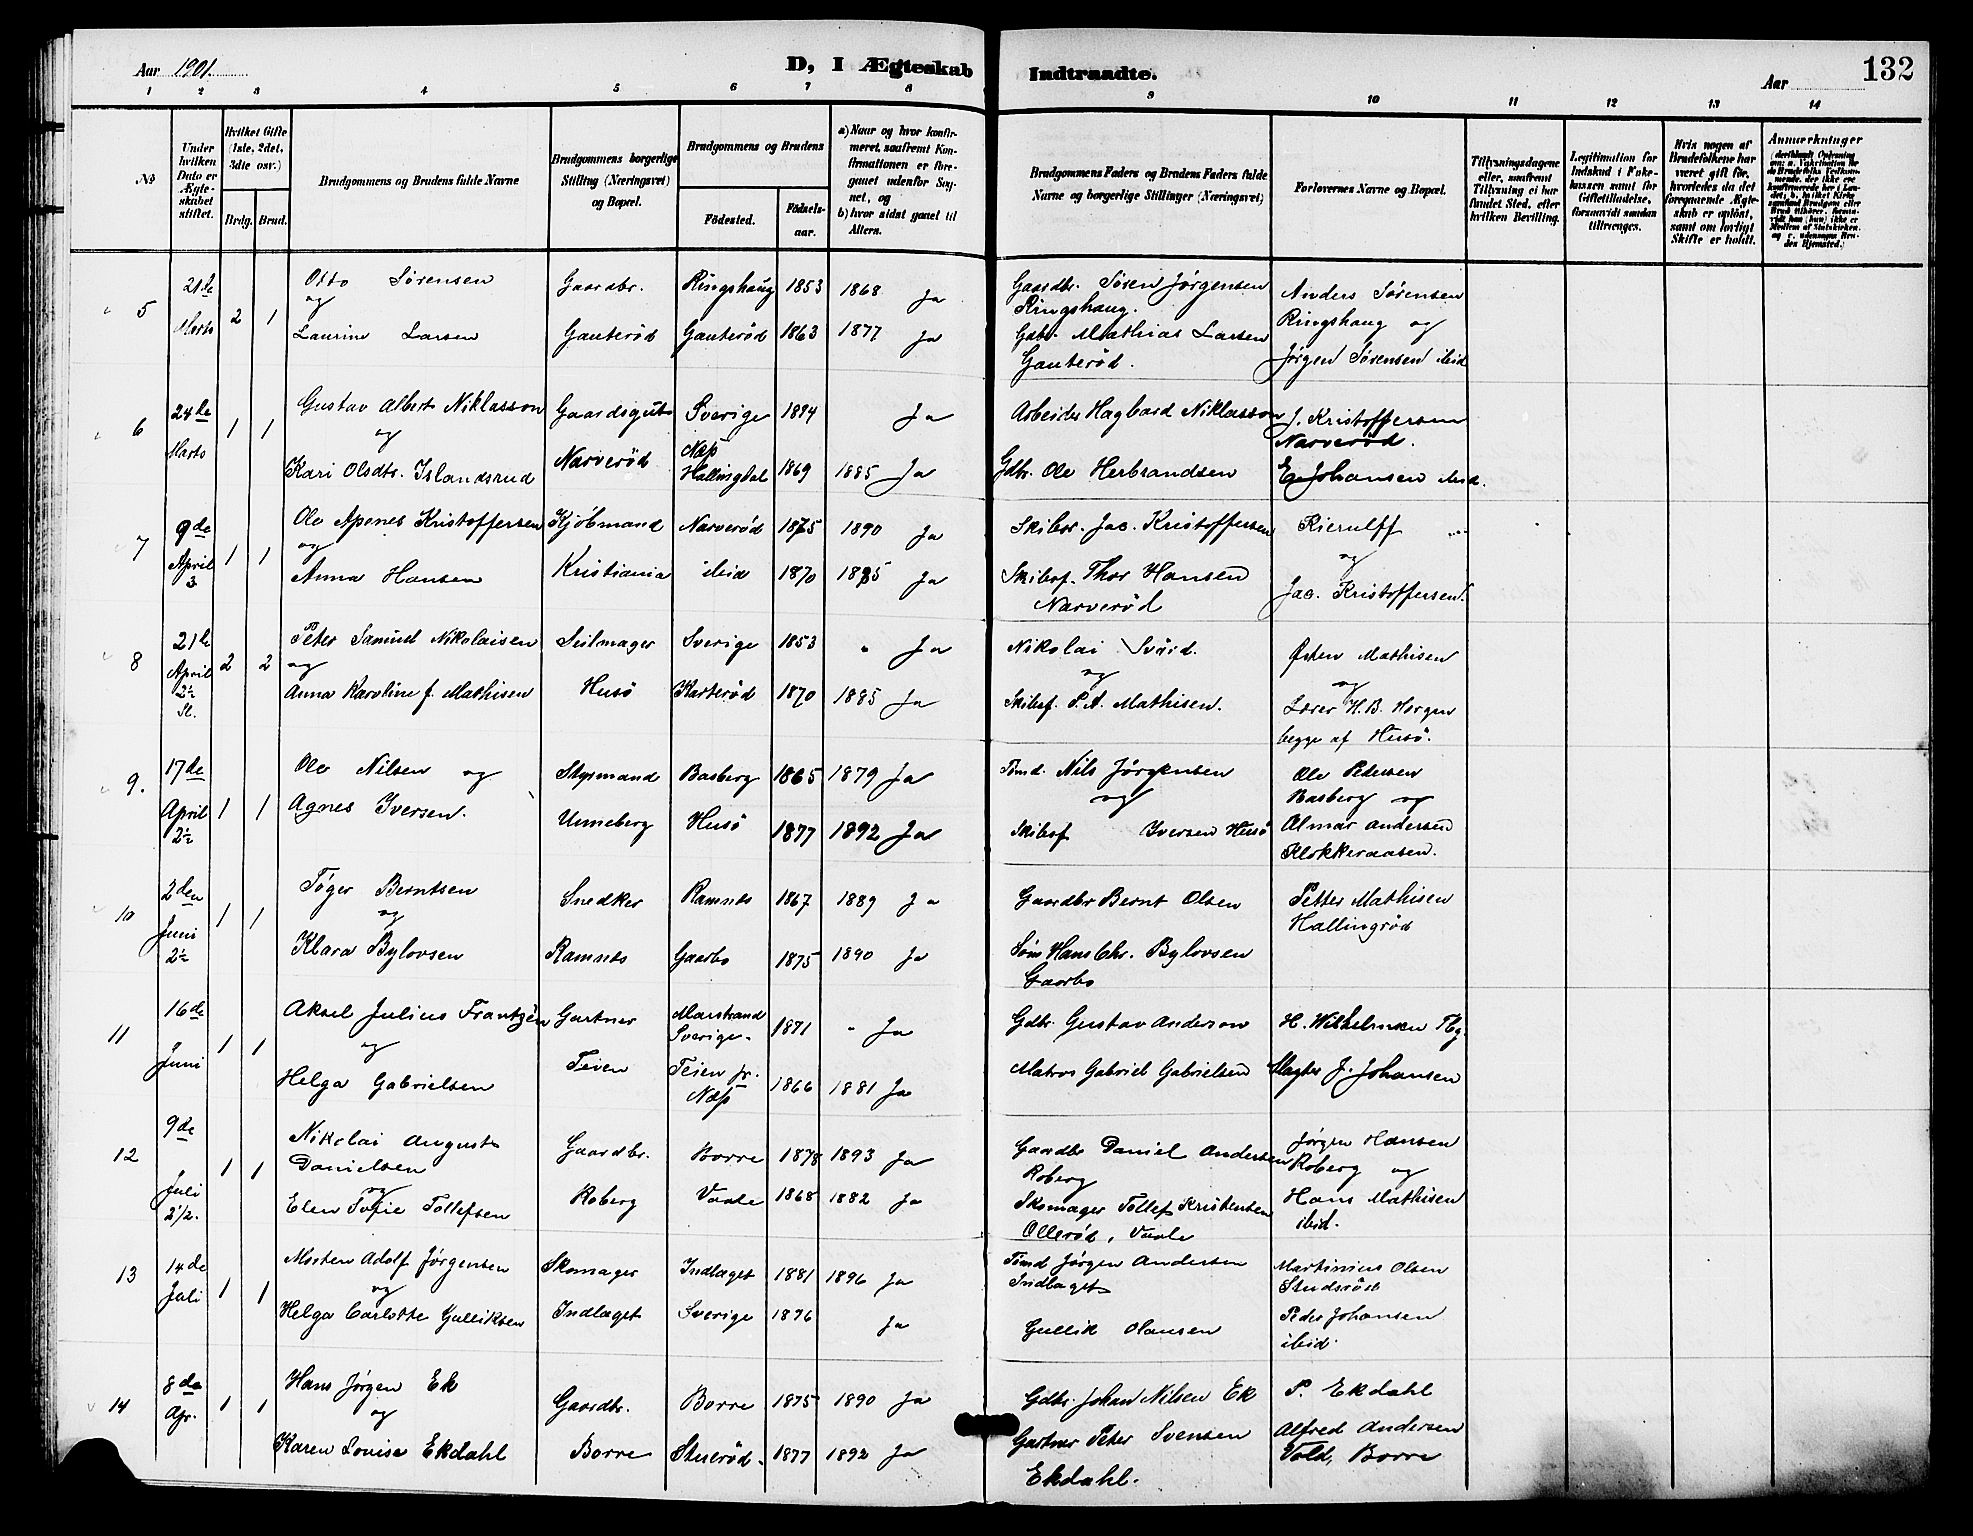 Aar 1901.
D, I Ægteskab Indtraadte.
Aar
132
1 2 3 4 5 6 7 8 9 10 11 12 13 14
No
Under hvilken Dato er Ægteskabet stiftet.
Hvilket Gifte (1ste, 2det, 3die osv.)
Brdg. Brud.
Brudgommens og Brudens fulde Navne
Brudgommens borgerlige Stilling (Næringsvei) og Bopæl.
Brudgommens og Brudens
Fødested.
Fødselsaar.
a) Naar og hvor konfirmeret, saafremt Konfirmationen er foregaaet udenfor Sognet, og
b) hvor sidst gaaet til Alters.
Brudgommens Faders og Brudens Faders fulde Navne og borgerlige Stillinger (Næringsvei)
Forlovernes Navne og Bopæl.
Tillysningsdagene eller, saafremt Tillysning ei har fundet Sted, efter hvilken Bevilling.
Legitimation for Indskud i Enkekassen samt for Giftetilladelse, forsaavidt saadan tiltrænges.
Hvis nogen af Brudefolkene har været gift før, hvorledes da det foregaaende Ægteskab er opløst, samt om lovligt Skifte er holdt.
Anmærkninger
5 21de Marts 2 1
Otto Sørensen Gaardbr. Ringshaug 1853 1868 Ja Gaardbr. Søren Jørgensen Ringshaug. Anders Sørensen Ringshaug og
og
Laurine Larsen Gauterød Gauterød 1863 1877 Ja Gdbr. Mathias Larsen Gauterød. Jørgen Sørensen ibid
6 24de Marts 1 1
Gustav Albert Niklasson Gaardsgut Sverige 1874 Ja Arbeider Hagbard Niklasson J. Kristoffersen Narverød.
og
Kari Olsdtr. Islandsrud Narverød Næs Hallingdal 1869 1885 Ja Gdbr. Ole Herbrandsen Johansen ibid.
7 9de April 3 1 1
Ole Agenes Kristoffersen Kjøbmand Narverød 1875 1890 Ja Skibsr. Jac. Kristoffersen Kierulff
og
Anna Hansen Kristiania ibid 1870 1885 Ja Skibsf. Thor Hansen Narverød og Jac. Kristoffersen.
8 21de April 2½ Sl. 2 2
Peter Samuel Nikolaisen Seilmager Sverige 1853 " Ja Nikolai Svärd. Østen Mathisen
og og og
Anna Karoline f. Mathisen Husø Karterød 1870 1885 Ja Skibsf. P. A. Mathisen. Lærer H. B. Horgen begge af Husø.
9. 17de April 2½ 1 1
Ole Nilsen og Styrmand Basberg 1865 1879 Ja Tømd. Nils Jørgensen Ole Pedersen Basberg og
og
Agnes Iversen. Unneberg Husø 1877 1892 Ja Skibsf Iversen Husø Almar Andersen Klokkeraasen.
10 2den Juni 2½ 1 1
Tøger Berntsen Snedker Ramnes 1867 1889 Ja Gaardbr Bernt Olsen Petter Mathisen Hallingrød
og
Klara Bylovsen Ramnes Gaarbo 1875 1890 Ja Søm Hans Chr. Bylovsen Gaarbo
11 16de Juni 1 1
Aksel Julius Frantzèn Gartner Marstrand Sverige. 1871 " Ja Gdbr. Gustav Anderson H. Wilhelmsen Tbg.
og
Helga Gabrielsen Teien Teien pr. Næs 1866 1881 Ja Matros Gabriel Gabrielsen J. Johansen
12 9de Juli 2 1/2. 1 1
Nikolai August Danielsen Gaardbr. Borre 1878 1893 Ja Gaardbr Daniel Andersen Roberg Jørgen Hansen Roberg og
og
Elen Sofie Tollefsen Roberg Vaale 1868 1882 Ja Skomager Tollef Kristensen Ollerød, Vaale Hans Mathisen ibid.
13 14de Juli 1 1
Morten Adolf Jørgensen Skomager Indlaget 1881 1896 Ja Tømd Jørgen Andersen Indlaget Martinius Olsen Studsrød
og
Helga Carlotte Gulliksen Indlaget Sverige 1876 Ja Gullik Olausen Peder Johansen ibid.
14 8de Apr. 1 1
Hans Jørgen Ek Gaardbr. Borre 1875 1890 Ja Gdbr. Johan Nilsen Ek P. Ekdahl
og
Karen Louise Ekdahl Borre Stuerød. 1877 1892 Ja Gartner Peter Svensen Ekdahl. Alfred Andersen Vold, Borre